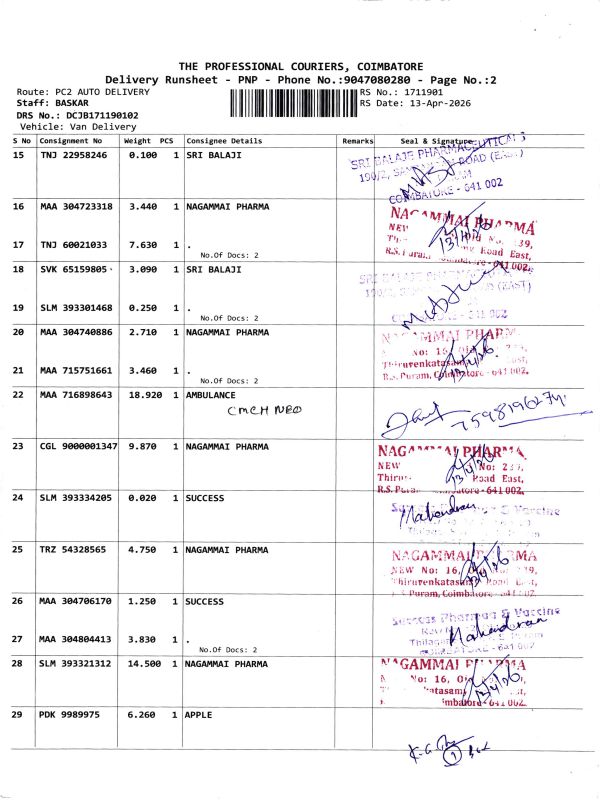 THE PROFESSIONAL COURIERS, COIMBATORE
Delivery Runsheet - PNP - Phone No.:9047080280 - Page No.:2
Route: PC2 AUTO DELIVERY RS No.: 1711901
Staff: BASKAR RS Date: 13-Apr-2026
DRS No.: DCJB171190102
Vehicle: Van Delivery
S No Consignment No Weight PCS Consignee Details Remarks Seal & Signature
15 TNJ 22958246 0.100 1 SRI BALAJI
SRI BALAJE PHARMACEUTICALS
190/2, ROAD (EAST)
COIMBATORE - 641 002
16 MAA 304723318 3.440 1 NAGAMMAI PHARMA
NAGAMMAI PHARMA
NEW Old No. 39,
Road East,
R.S. Puram, - 641 002.
17 TNJ 60021033 7.630 1 .
No.Of Docs: 2
18 SVK 65159805 3.090 1 SRI BALAJI
SRI BALAJE
190/2, (EAST)
- 641 002
19 SLM 393301468 0.250 1 .
No.Of Docs: 2
20 MAA 304740886 2.710 1 NAGAMMAI PHARMA
PHARM
No: 16,
Thiruvenkatasamy East,
R.S. Puram, Coimbatore - 641 002.
21 MAA 715751661 3.460 1 .
No.Of Docs: 2
22 MAA 716898643 18.920 1 AMBULANCE
CMCH
7598196274
23 CGL 9000001347 9.870 1 NAGAMMAI PHARMA
NAGAMMAI PHARMA
NEW No: 239,
Road East,
R.S. Puram - 641 002.
24 SLM 393334205 0.020 1 SUCCESS
Mahendran
25 TRZ 54328565 4.750 1 NAGAMMAI PHARMA
NAGAMMAI PHARMA
NEW No: 16, 39,
Thiruvenkatasamy Road East,
R.S Puram, Coimbatore - 641 002.
26 MAA 304706170 1.250 1 SUCCESS
Success Pharma & Vaccine
Mahendran
27 MAA 304804413 3.830 1 .
No.Of Docs: 2
28 SLM 393321312 14.500 1 NAGAMMAI PHARMA
NAGAMMAI PHARMA
No: 16,
- 641 002.
29 PDK 9989975 6.260 1 APPLE
1